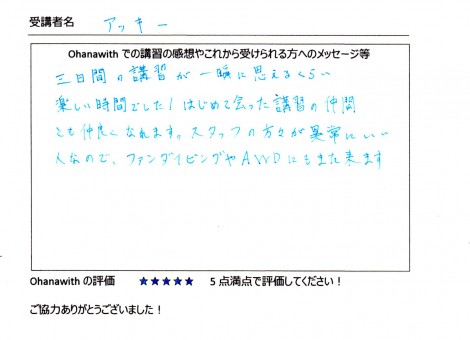 受講者名 アッキー
Ohanawith での講習の感想やこれから受けられる方へのメッセージ等
三日間の講習が一瞬に思えるくらい
楽しい時間でした！はじめて会った講習の仲間
とも仲良くなれます。スタッフの方々が異常にいい
人なので、ファンダイビングやAWDにもまた来ます
Ohanawith の評価 ★★★★★ 5 点満点で評価してください！
ご協力ありがとうございました！